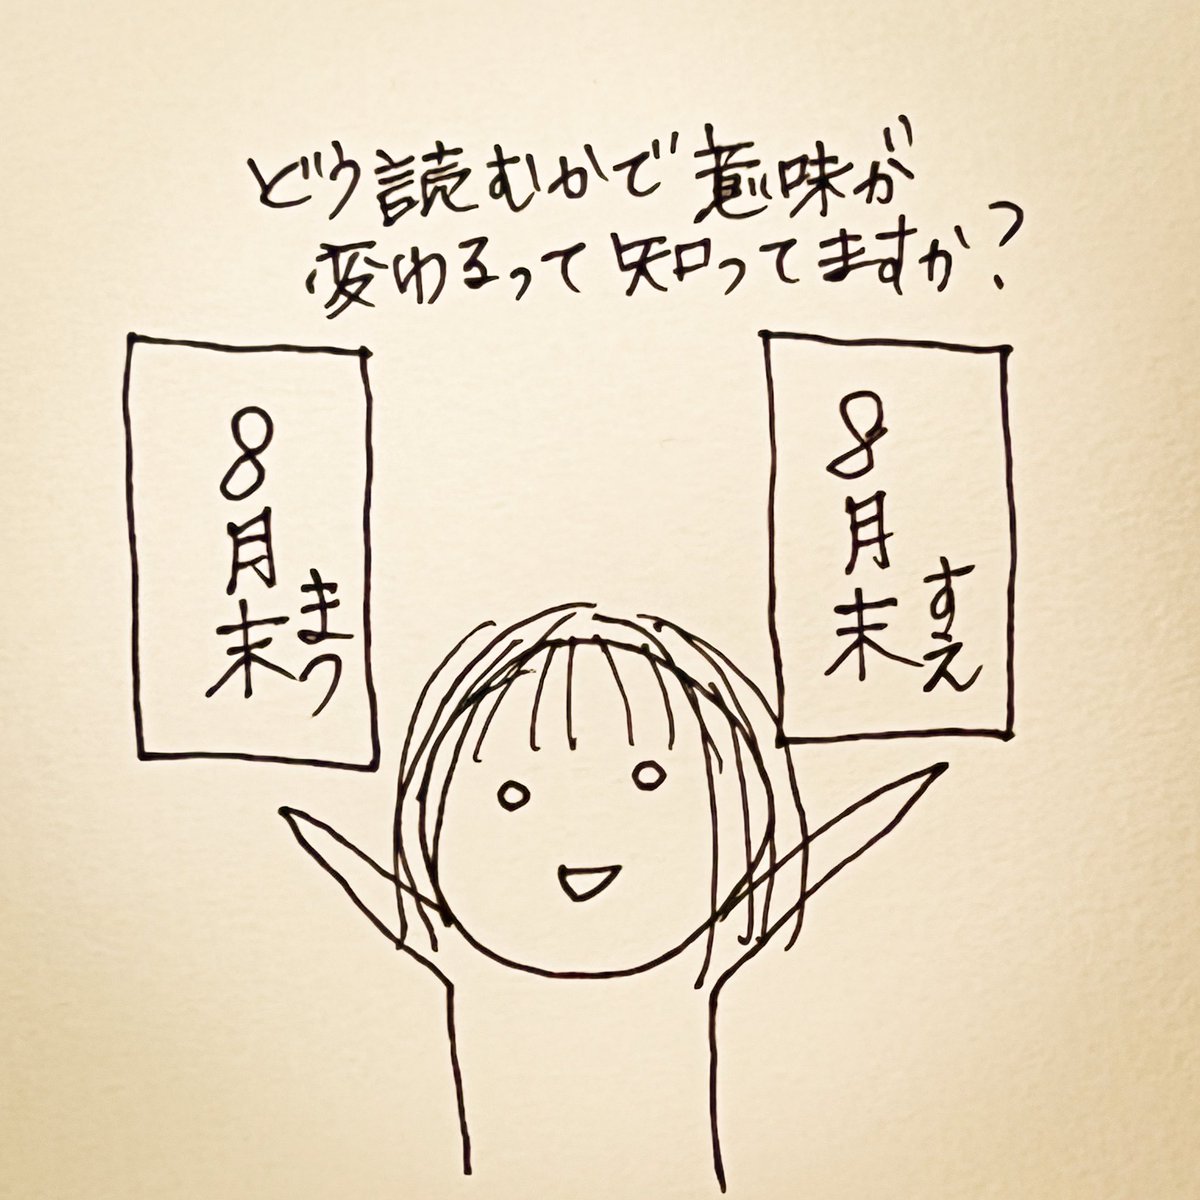 どう読むかで意味が
変わるって知ってますか?
8月末
まつ
8月末
すえ